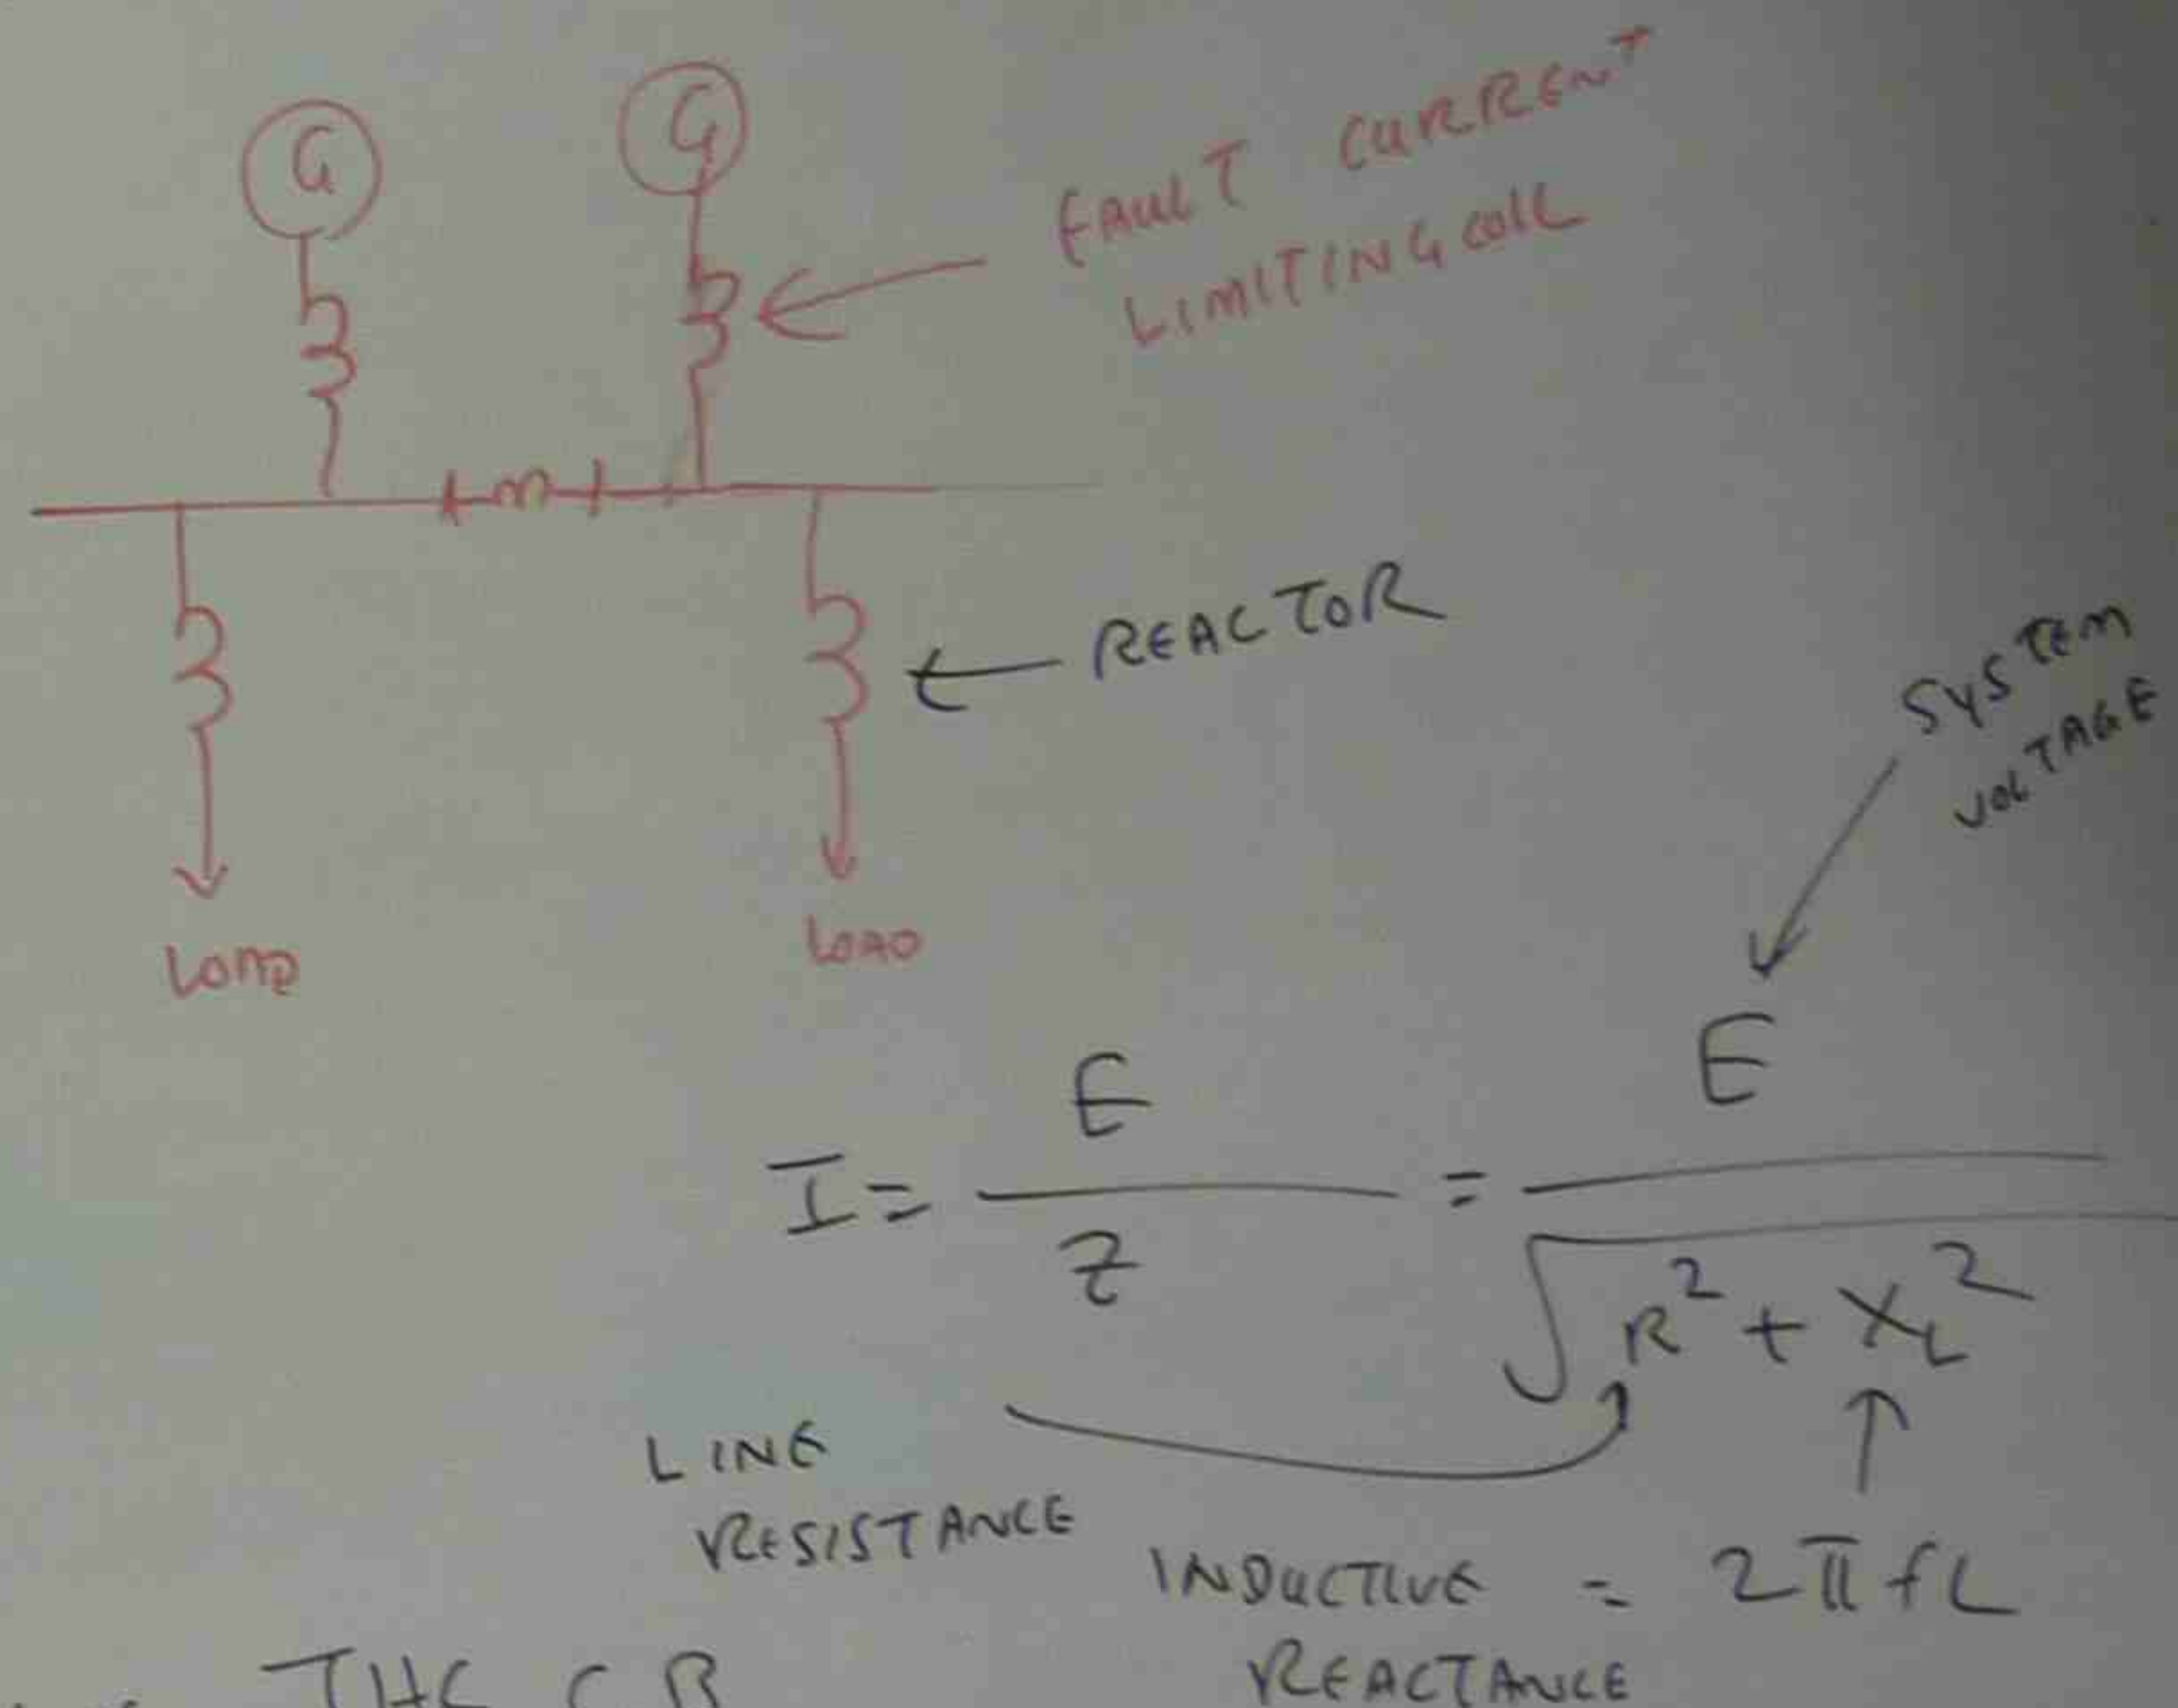 G
G
FAULT CURRENT
LIMITING COIL
REACTOR
SYSTEM
VOLTAGE
LOAD
LOAD
I = E / Z = E / √R² + XL²
LINE
RESISTANCE
INDUCTIVE = 2πfL
REACTANCE
THE CB